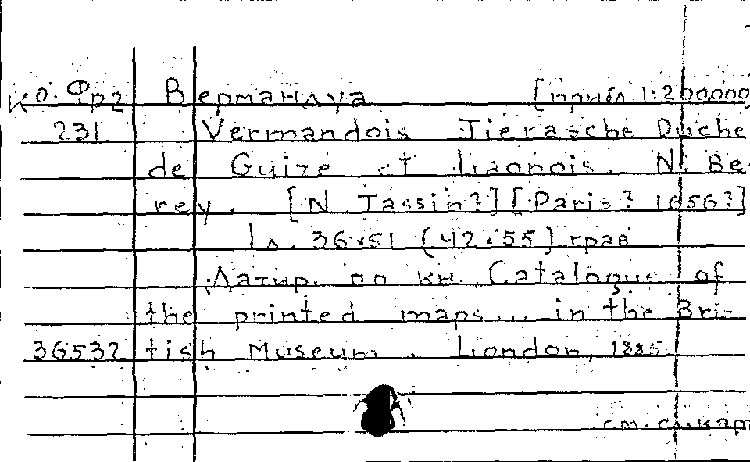 Ко. Фр2 Вермандуа [прибл 1:200.000
231 Vermandois Tierasche Duche
de Guize et Laonois. N. Be-
rey. [N Tassin?] [Paris? 1656?]
1 л. 36×51 (42×55) грав
Датир. по кн. Catalogue of
the printed maps... in the Bri-
36532 tish Museum. London, 1885
см. сл. кар